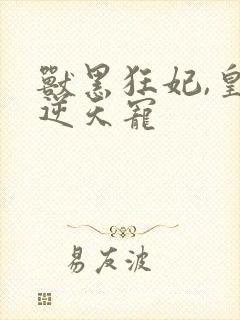 獸黑狂妃,皇
逆天寵
易友波